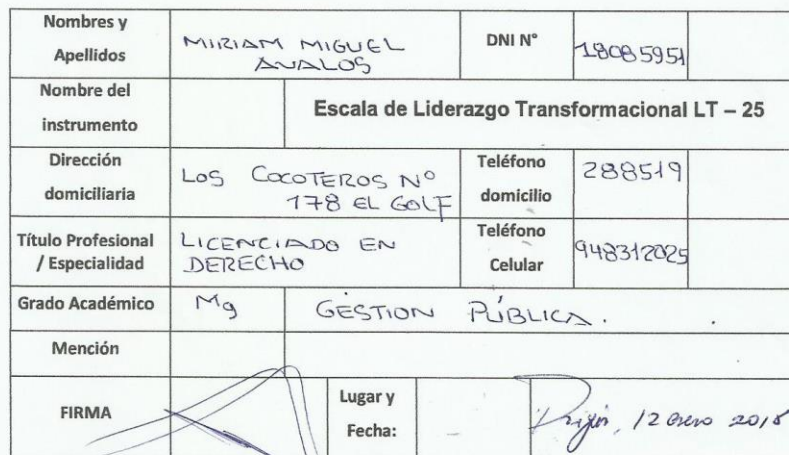 Nombres y
Apellidos
MIRIAM MIGUEL
AVALOS
DNI N°
18085951
Nombre del
instrumento
Escala de Liderazgo Transformacional LT – 25
Dirección
domiciliaria
LOS COCOTEROS N°
178 EL GOLF
Teléfono
domicilio
288519
Título Profesional
/ Especialidad
LICENCIADO EN
DERECHO
Teléfono
Celular
948312025
Grado Académico
Mg
GESTION PÚBLICA.
Mención
FIRMA
Lugar y
Fecha:
12 enero